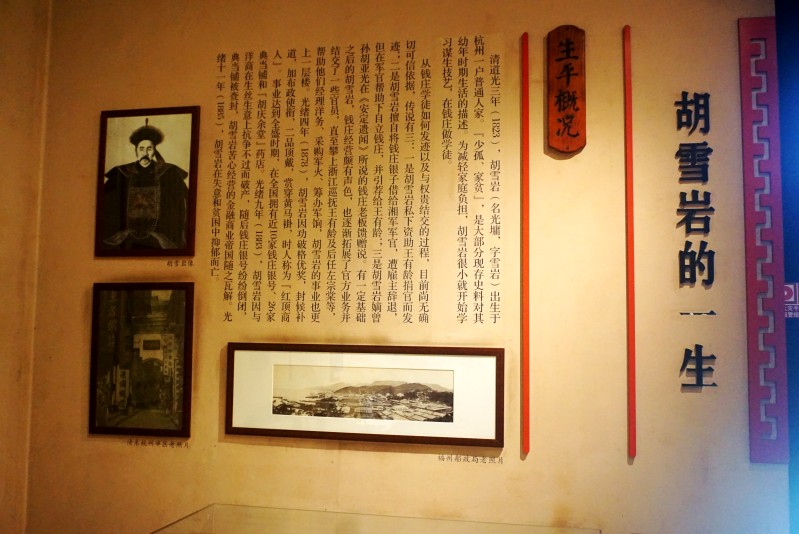 胡雪岩的一生
生平概况
清道光三年（1823），胡雪岩（名光墉，字雪岩）出生于
杭州一户普通人家，「少孤，家贫」，是大部分现存史料对其
幼年时期生活的描述。为减轻家庭负担，胡雪岩很小就开始学
习谋生技艺，在钱庄做学徒。
从钱庄学徒如何发迹以及与权贵结交的过程，目前尚无确
切可信依据，传说有三：一是胡雪岩私下资助王有龄捐官而发
迹；二是胡雪岩擅自将钱庄银子借给湘军军官，遭雇主辞退，
但在军官帮助下自立钱庄，并引荐给王有龄；三是胡雪岩嫡曾
孙胡亚光在《安定遗闻》所说的钱庄老板馈赠说。有一定基础
之后的胡雪岩，钱庄经营颇有声色，也逐渐拓展了官方业务并
结交了一些官员，直至攀上浙江巡抚王有龄及后任左宗棠等，
帮助他们经理洋务、采购军火、筹办军饷，胡雪岩的事业也更
上一层楼。光绪四年（1878），胡雪岩因功破格优奖，封候补
道，加布政使衔，二品顶戴，赏穿黄马褂，时人称为「红顶商
人」。事业达到全盛时期，在全国拥有近10家钱庄银号，26家
典当铺和「胡庆余堂」药店。光绪九年（1883），胡雪岩因与
洋商在生丝生意上抗争不过而破产，随后钱庄银号纷纷倒闭，
典当铺被查封，胡雪岩苦心经营的金融商业帝国随之瓦解。光
绪十一年（1885），胡雪岩在失意和贫困中抑郁而亡。
胡雪岩像
清末杭州市区老照片
福州船政局老照片